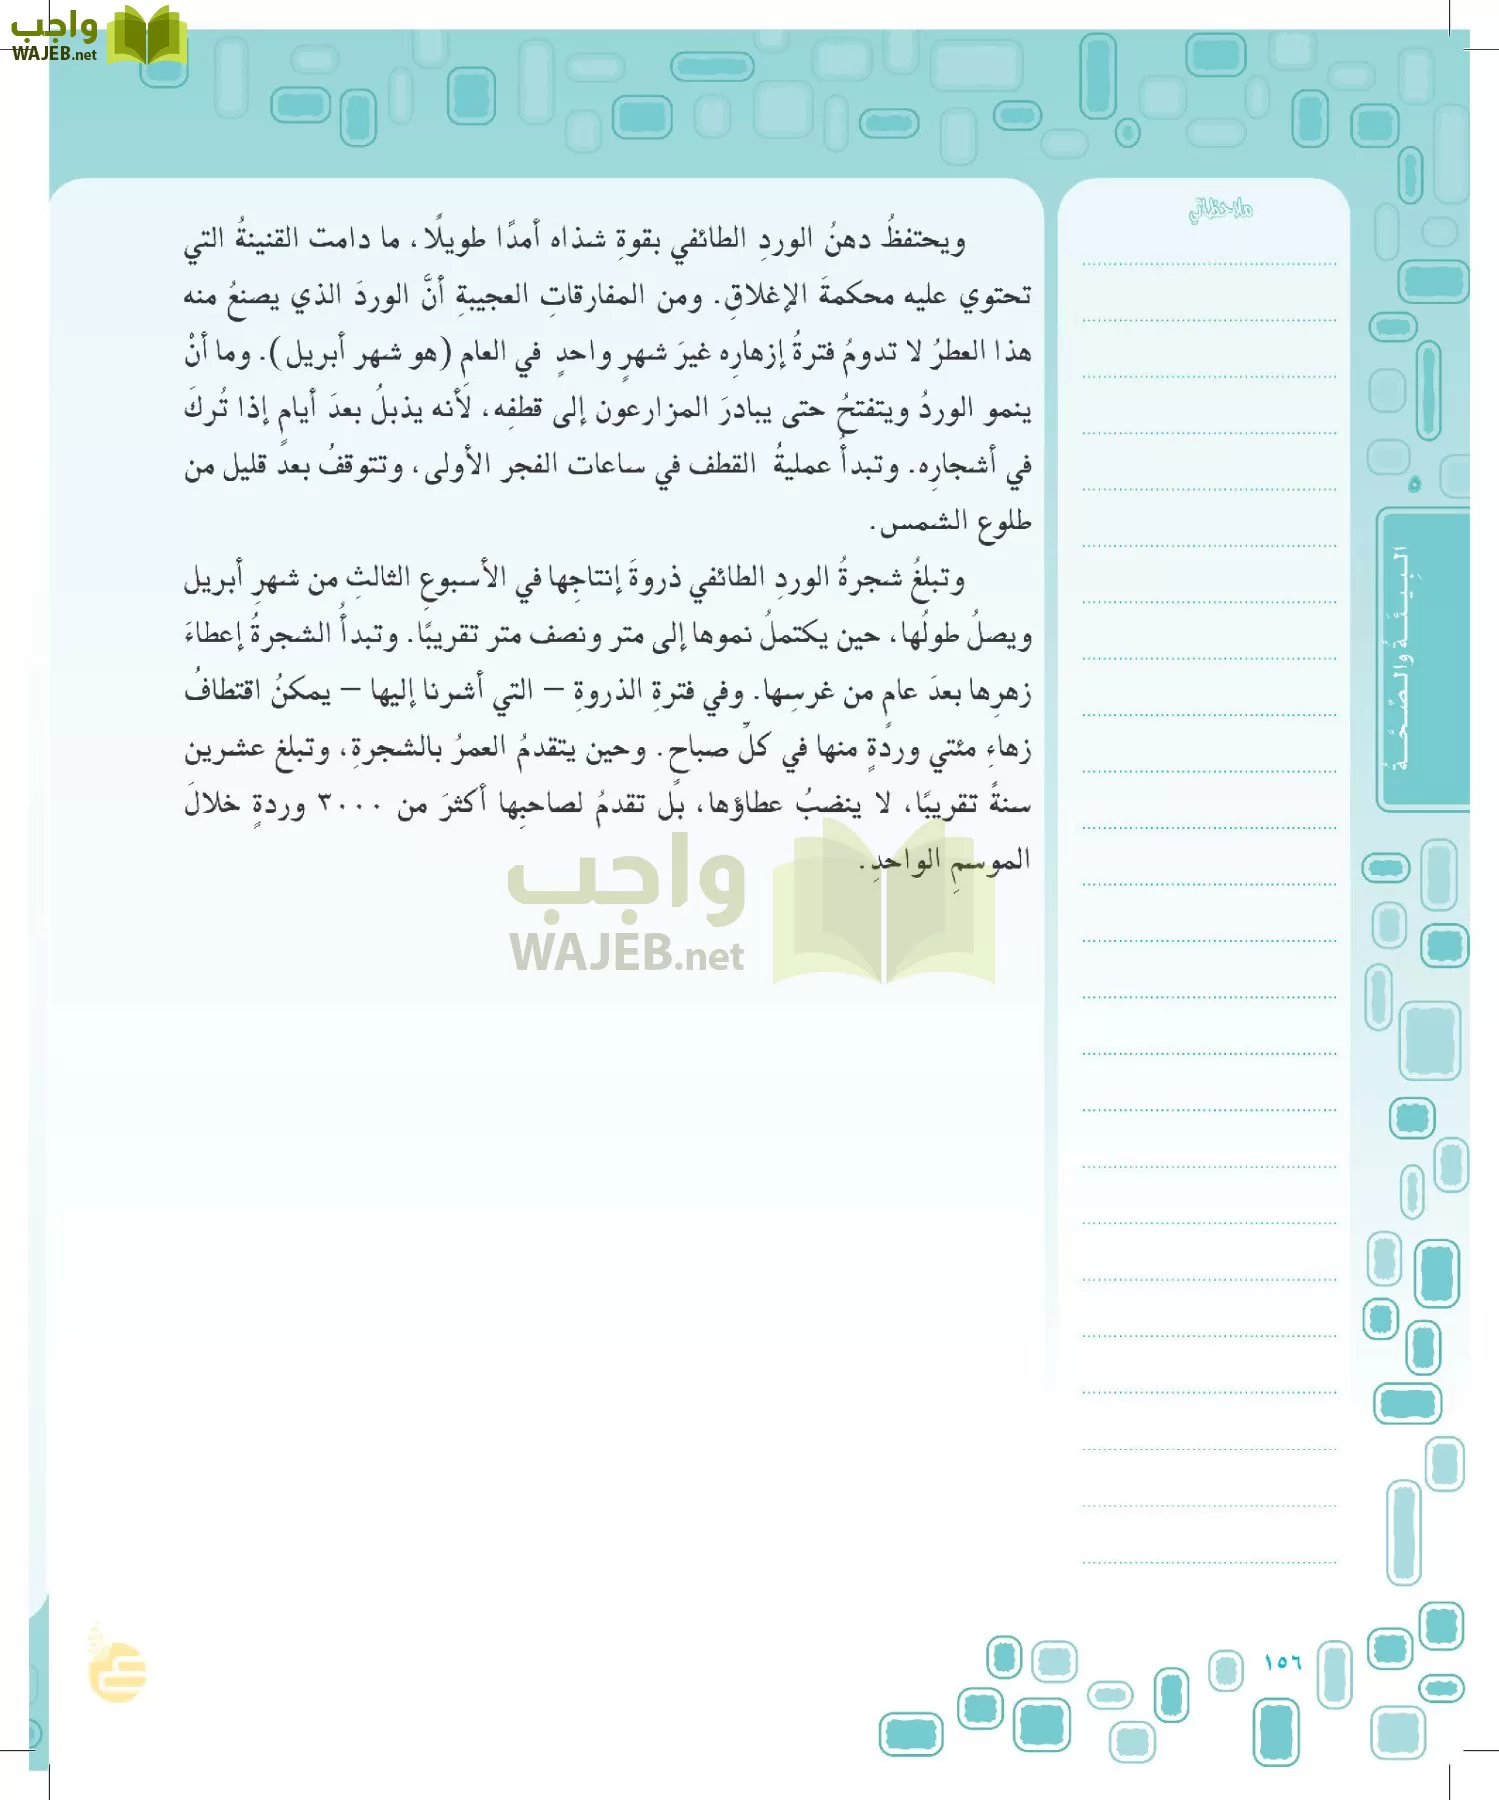 واجب
WAJEB.net
ملاحظاتي
ويحتفظُ دهنُ الوردِ الطائفي بقوةِ شذاه أمدًا طويلًا، ما دامت القنينةُ التي
تحتوي عليه محكمةَ الإغلاقِ. ومن المفارقاتِ العجيبةِ أنَّ الوردَ الذي يصنعُ منه
هذا العطرُ لا تدومُ فترةُ إزهارِه غيرَ شهرٍ واحدٍ في العامِ (هو شهر أبريل). وما أنْ
ينمو الوردُ ويتفتحُ حتى يبادرَ المزارعون إلى قطفِه، لأنه يذبلُ بعدَ أيامٍ إذا تُركَ
في أشجارِه. وتبدأُ عمليةُ القطف في ساعات الفجر الأولى، وتتوقفُ بعدَ قليل من
طلوع الشمس.
وتبلغُ شجرةُ الوردِ الطائفي ذروةَ إنتاجِها في الأسبوعِ الثالثِ من شهرِ أبريل
ويصلُ طولُها، حين يكتملُ نموها إلى متر ونصف متر تقريبًا. وتبدأُ الشجرةُ إعطاءَ
زهرِها بعدَ عامٍ من غرسِها. وفي فترةِ الذروةِ – التي أشرنا إليها – يمكنُ اقتطافُ
زهاءِ مئتي وردةٍ منها في كلِّ صباحٍ. وحين يتقدمُ العمرُ بالشجرةِ، وتبلغ عشرين
سنةً تقريبًا، لا ينضبُ عطاؤها، بل تقدمُ لصاحبِها أكثرَ من ٣٠٠٠ وردةٍ خلالَ
الموسمِ الواحدِ.
واجب
WAJEB.net
البِيئَةُ والصِّحَّةُ
١٥٦